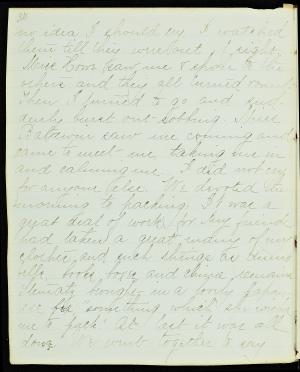 38
no idea I should cry. I watched
them till they were out of sight.
Miss Howe saw me & spoke to the
others and they all turned round.
Then I turned to go and sud-
denly burst out sobbing. Miss
Baldwin saw me coming and
came to meet me, taking me in
and calming me. I did not cry
for anyone else. We devoted the
morning to packing. It was a
great deal of work, for my friend
had taken a great many of my
clothes, and such things as
books, toys and china remain
bought me a lovely Japan-
ese "something" which she
me to pack. At last it was all
done. We went together to say